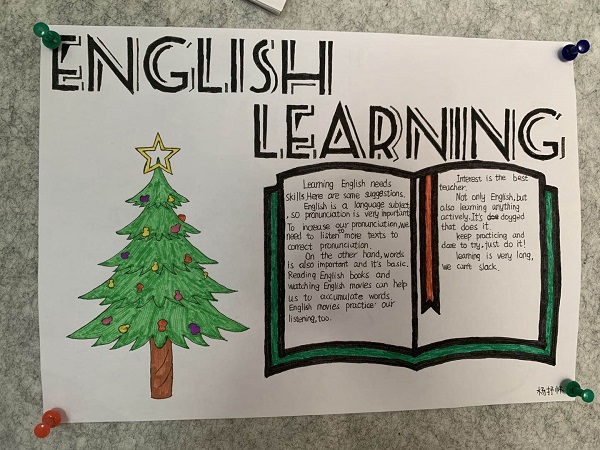 ENGLISH
LEARNING
Learning English needs
skills. Here are some suggestions.
English is a language subject
, so pronunciation is very important
To increase our pronunciation, we
need to listen to more texts to
correct pronunciation.
On the other hand, words
is also important and it's basic.
Reading English books and
watching English movies can help
us to accumulate words.
English movies practice our
listening, too.
Interest is the best
teacher.
Not only English, but
also learning anything
actively. It's dogged
that does it.
keep practicing and
dare to try, just do it!
learning is very long,
we can't slack.